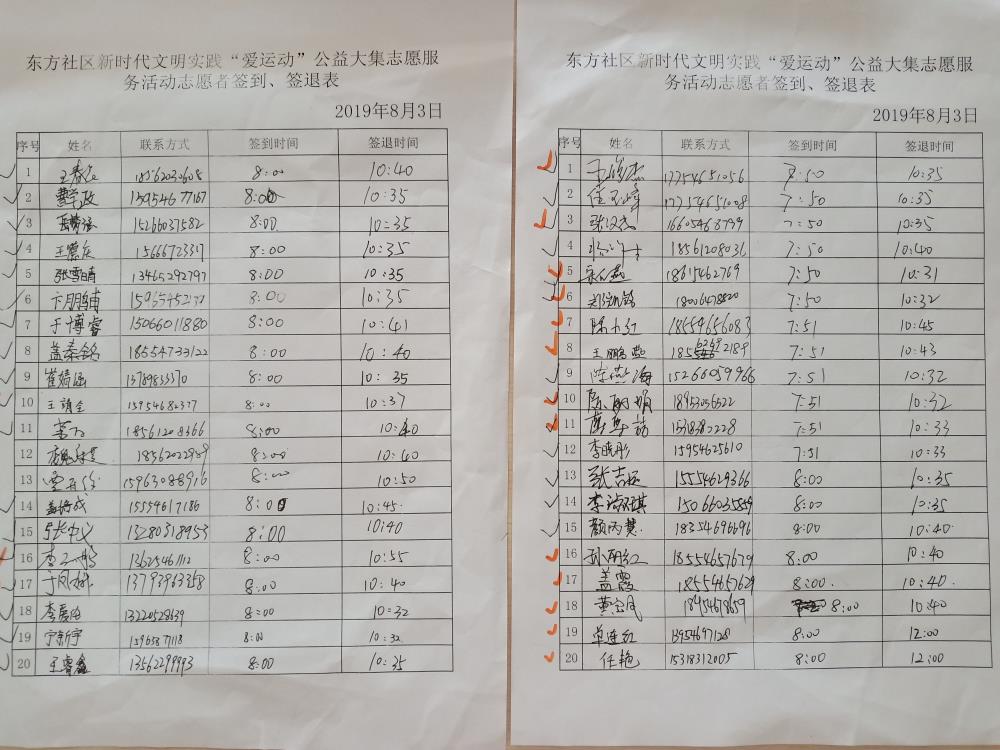 东方社区新时代文明实践“爱运动”公益大集志愿服
务活动志愿者签到、签退表
2019年8月3日
序号 姓名 联系方式 签到时间 签退时间
1 王春 8:00 10:40
2 政 8:00 10:35
3 15266037582 8:00 10:35
4 王震庆 15666723317 8:00 10:35
5 张雪晴 13465292797 8:00 10:35
6 卞朋辅 8:00 10:35
7 于博睿 15066011880 8:00 10:41
8 盖秦铭 18554733122 8:00 10:40
9 崔婧涵 13789833370 8:00 10:35
10 王 15954682377 8:00 10:37
11 18561208366 8:00 10:40
12 18562022989 8:00 10:40
13 15963088916 8:00 10:50
14 成 15554617186 8:00 10:45
15 张中义 13280318953 8:00 10:40
16 李 13625461112 8:00 10:55
17 于凤 13793963358 8:00 10:40
18 李 13220528639 8:00 10:32
19 宁新宇 8:00 10:32
20 王睿鑫 13562299993 8:00 10:35
东方社区新时代文明实践“爱运动”公益大集志愿服
务活动志愿者签到、签退表
2019年8月3日
序号 姓名 联系方式 签到时间 签退时间
1 17754651056 7:50 10:35
2 任 17754651008 7:50 10:35
3 张 16605463739 7:50 10:35
4 18561208036 7:50 10:40
5 18615462769 7:50 10:31
6 郑凯铭 18006478820 7:50 10:32
7 陈 18659656083 7:51 10:45
8 王鹏 7:51 10:43
9 陈燕海 15266059966 7:51 10:32
10 陈丽娟 18953056522 7:51 10:32
11 7:51 10:33
12 李晓彤 15954625610 7:51 10:33
13 张吉 15554629366 8:00 10:35
14 李 琪 15066035859 8:00 10:35
15 颜丙慧 18354696696 8:00 10:40
16 孙丽红 18554657629 8:00 10:40
17 盖霞 18554657629 8:00 10:40
18 黄 月 8:00 10:40
19 单连红 13954697128 8:00 12:00
20 任艳 15318312005 8:00 12:00